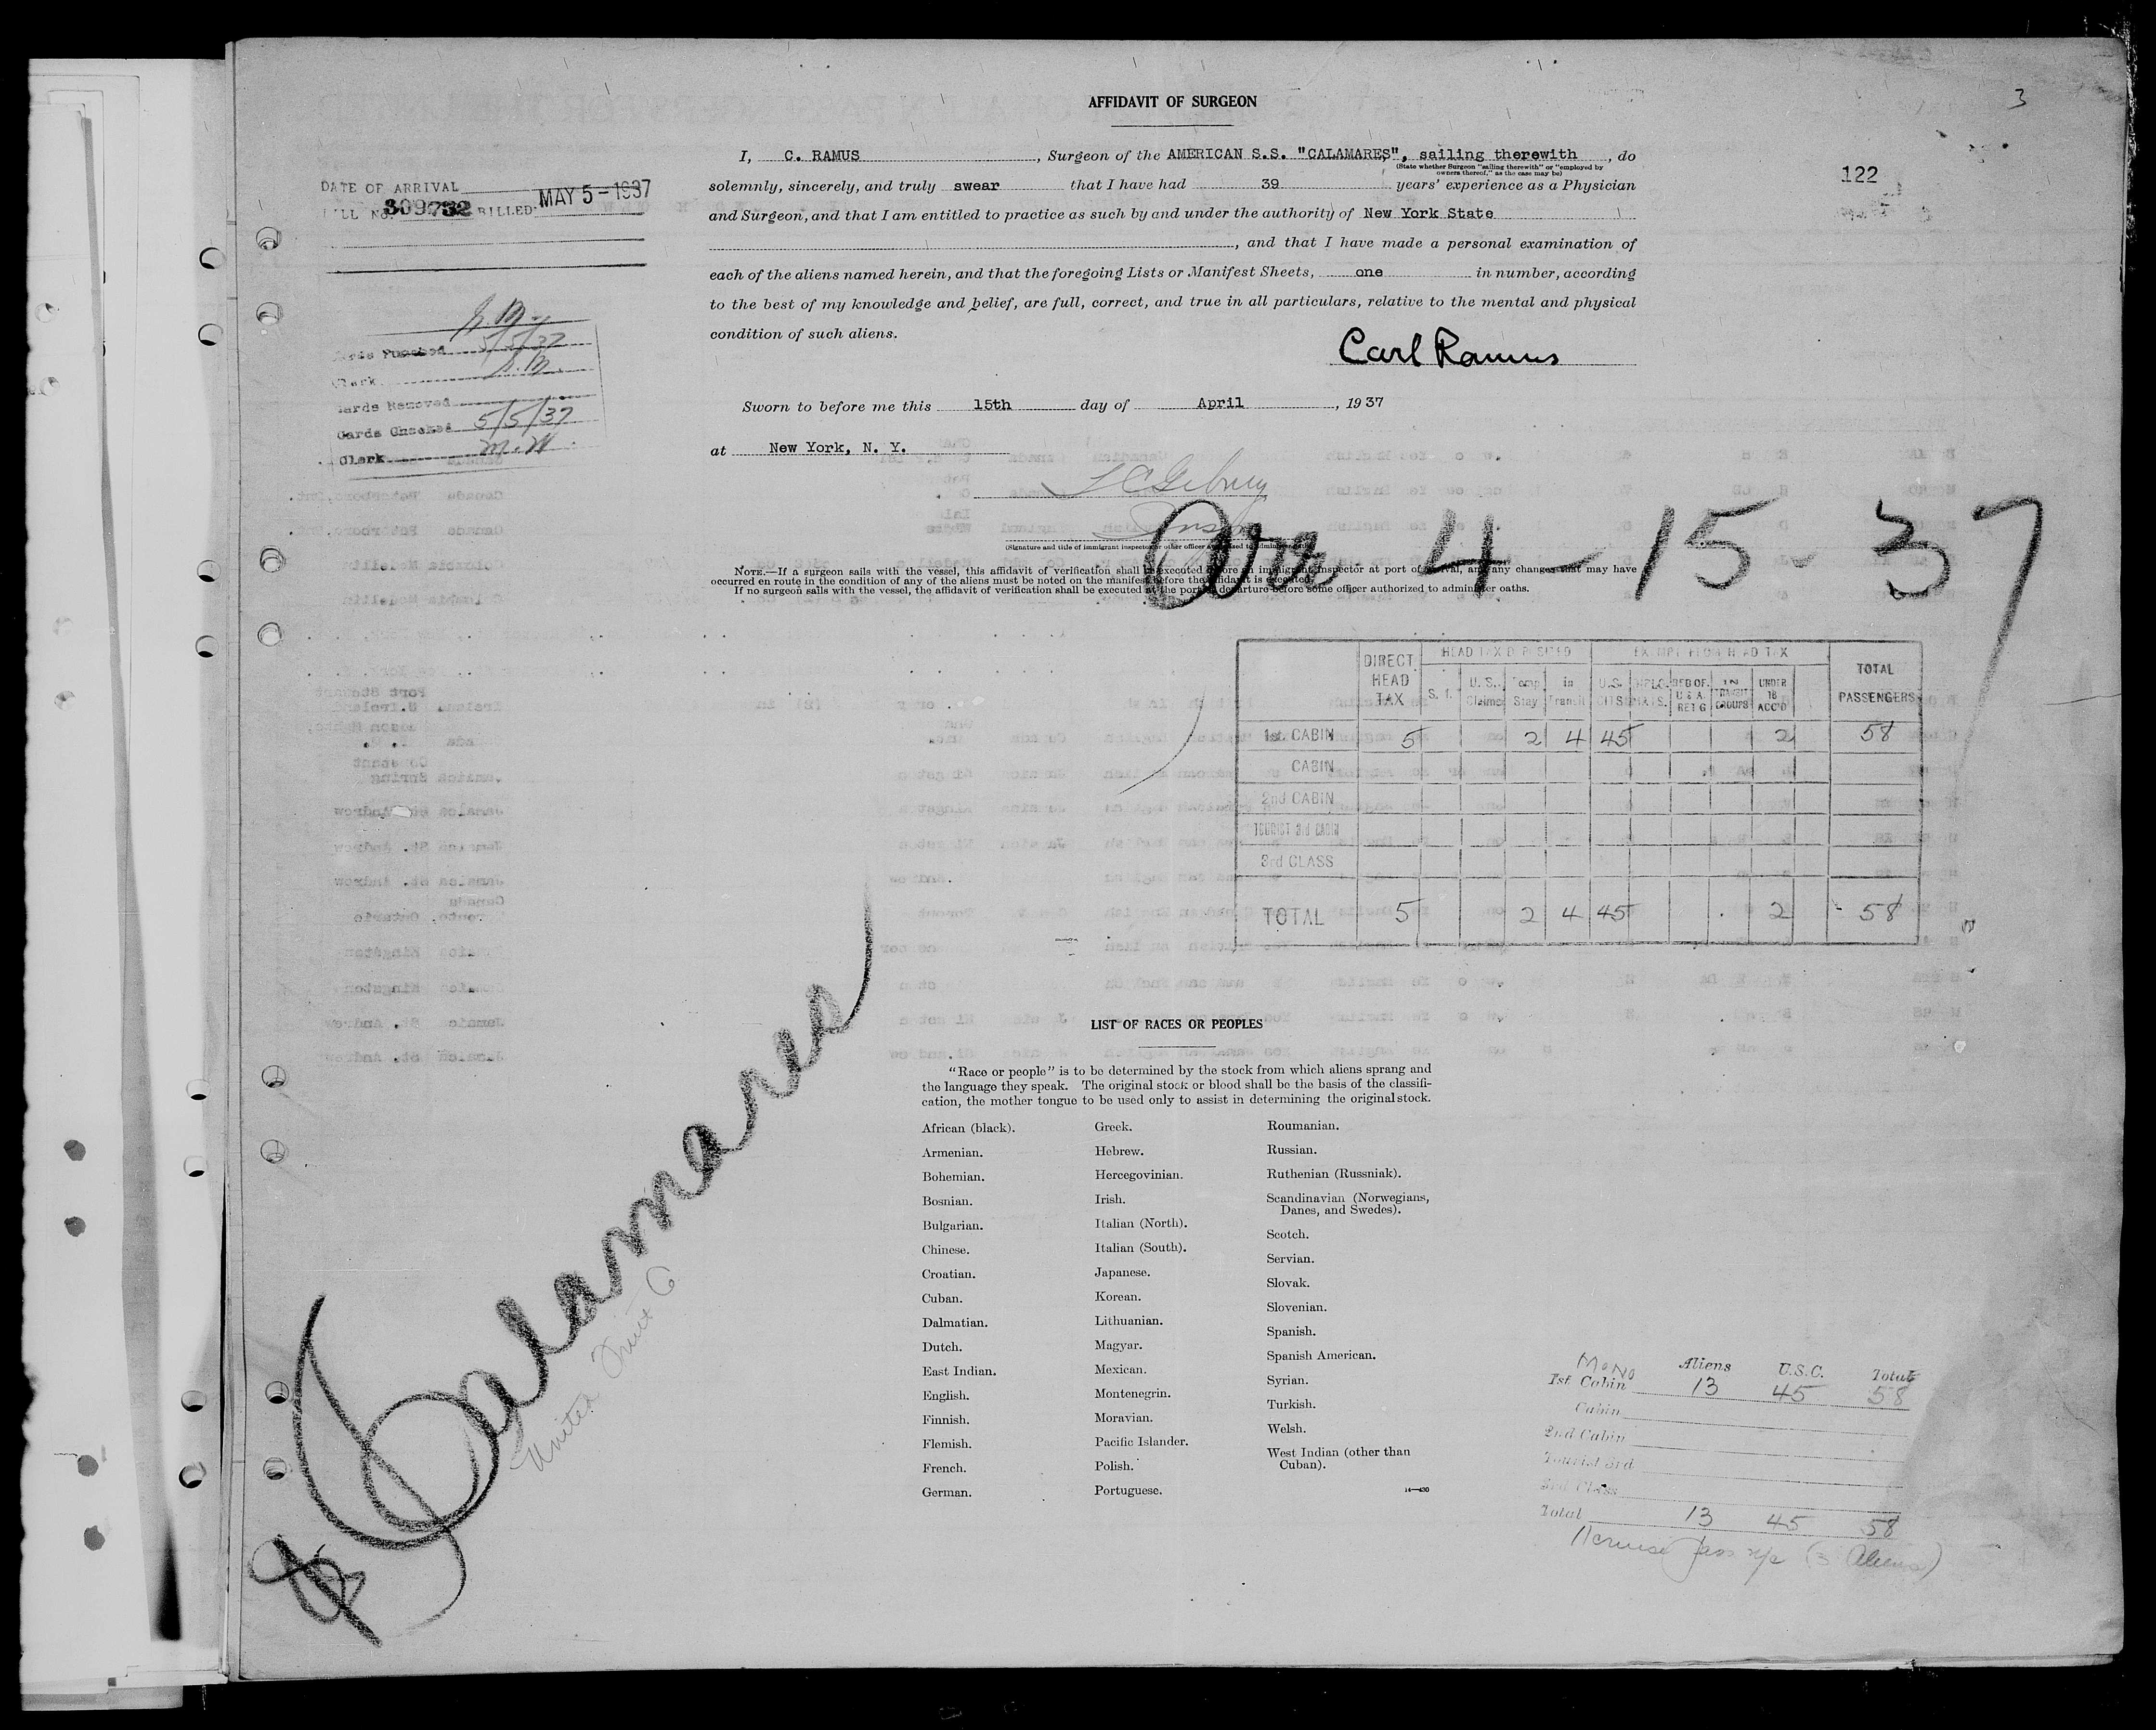 AFFIDAVIT OF SURGEON
3
I, C. RAMUS, Surgeon of the AMERICAN S.S. "CALAMARES", sailing therewith, do
(State whether Surgeon "sailing therewith" or "employed by
owners thereof," as the case may be)
122
solemnly, sincerely, and truly swear that I have had 39 years' experience as a Physician
and Surgeon, and that I am entitled to practice as such by and under the authority of New York State
, and that I have made a personal examination of
each of the aliens named herein, and that the foregoing Lists or Manifest Sheets, one in number, according
to the best of my knowledge and belief, are full, correct, and true in all particulars, relative to the mental and physical
condition of such aliens.
Carl Ramus
Sworn to before me this 15th day of April, 1937
at New York, N. Y.
(Signature and title of immigrant inspector or other officer authorized to administer oaths)
DATE OF ARRIVAL
BILL NO. 309732 BILLED MAY 5-1937
Cards Punched 5/5/37
Clerk
Cards Removed
Cards Checked 5/5/37
Clerk M.M.
Arr 4-15-37
NOTE.—If a surgeon sails with the vessel, this affidavit of verification shall be executed before an immigrant inspector at port of arrival, and any changes that may have
occurred en route in the condition of any of the aliens must be noted on the manifest before the affidavit is executed.
If no surgeon sails with the vessel, the affidavit of verification shall be executed at the port of departure before some officer authorized to administer oaths.
DIRECT HEAD TAX
HEAD TAX DEPOSITED
EXEMPT FROM HEAD TAX
TOTAL PASSENGERS
S. I. U. S. Claims Temp Stay in Transit U.S. CITS. DPLO-MATS. RED OF. U S A. RET G IN TRANSIT GROUPS UNDER 16 ACC'D
1st. CABIN 5 2 4 45 2 58
CABIN
2nd CABIN
TOURIST 3rd CABIN
3rd CLASS
TOTAL 5 2 4 45 2 58
Calamares
United Fruit Co
LIST OF RACES OR PEOPLES
"Race or people" is to be determined by the stock from which aliens sprang and
the language they speak. The original stock or blood shall be the basis of the classifi-
cation, the mother tongue to be used only to assist in determining the original stock.
African (black).
Armenian.
Bohemian.
Bosnian.
Bulgarian.
Chinese.
Croatian.
Cuban.
Dalmatian.
Dutch.
East Indian.
English.
Finnish.
Flemish.
French.
German.
Greek.
Hebrew.
Hercegovinian.
Irish.
Italian (North).
Italian (South).
Japanese.
Korean.
Lithuanian.
Magyar.
Mexican.
Montenegrin.
Moravian.
Pacific Islander.
Polish.
Portuguese.
Roumanian.
Russian.
Ruthenian (Russniak).
Scandinavian (Norwegians,
Danes, and Swedes).
Scotch.
Servian.
Slovak.
Slovenian.
Spanish.
Spanish American.
Syrian.
Turkish.
Welsh.
West Indian (other than
Cuban).
14—430
Aliens U.S.C. Total
1st. Cabin 13 45 58
Cabin
2nd Cabin
Tourist 3rd
3rd Class
Total 13 45 58
(3 Aliens)